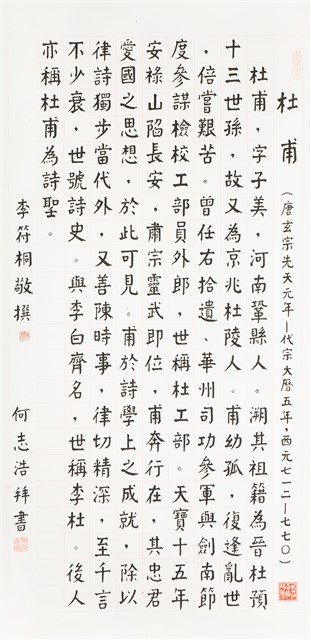 杜甫（唐玄宗先天元年—代宗大曆五年，西元七一二—七七〇）
杜甫，字子美，河南鞏縣人。溯其祖籍為晉杜預
十三世孫，故又為京兆杜陵人。甫幼孤，復逢亂世
，倍嘗艱苦。曾任右拾遺、華州司功參軍與劍南節
度參謀檢校工部員外郎，世稱杜工部。天寶十五年
安祿山陷長安，肅宗靈武即位，甫奔行在，其忠君
愛國之思想，於此可見。甫於詩學上之成就，除以
律詩獨步當代外，又善陳時事，律切精深，至千言
不少衰，世號詩史。與李白齊名，世稱李杜。後人
亦稱杜甫為詩聖。
李符桐敬撰
何志浩拜書